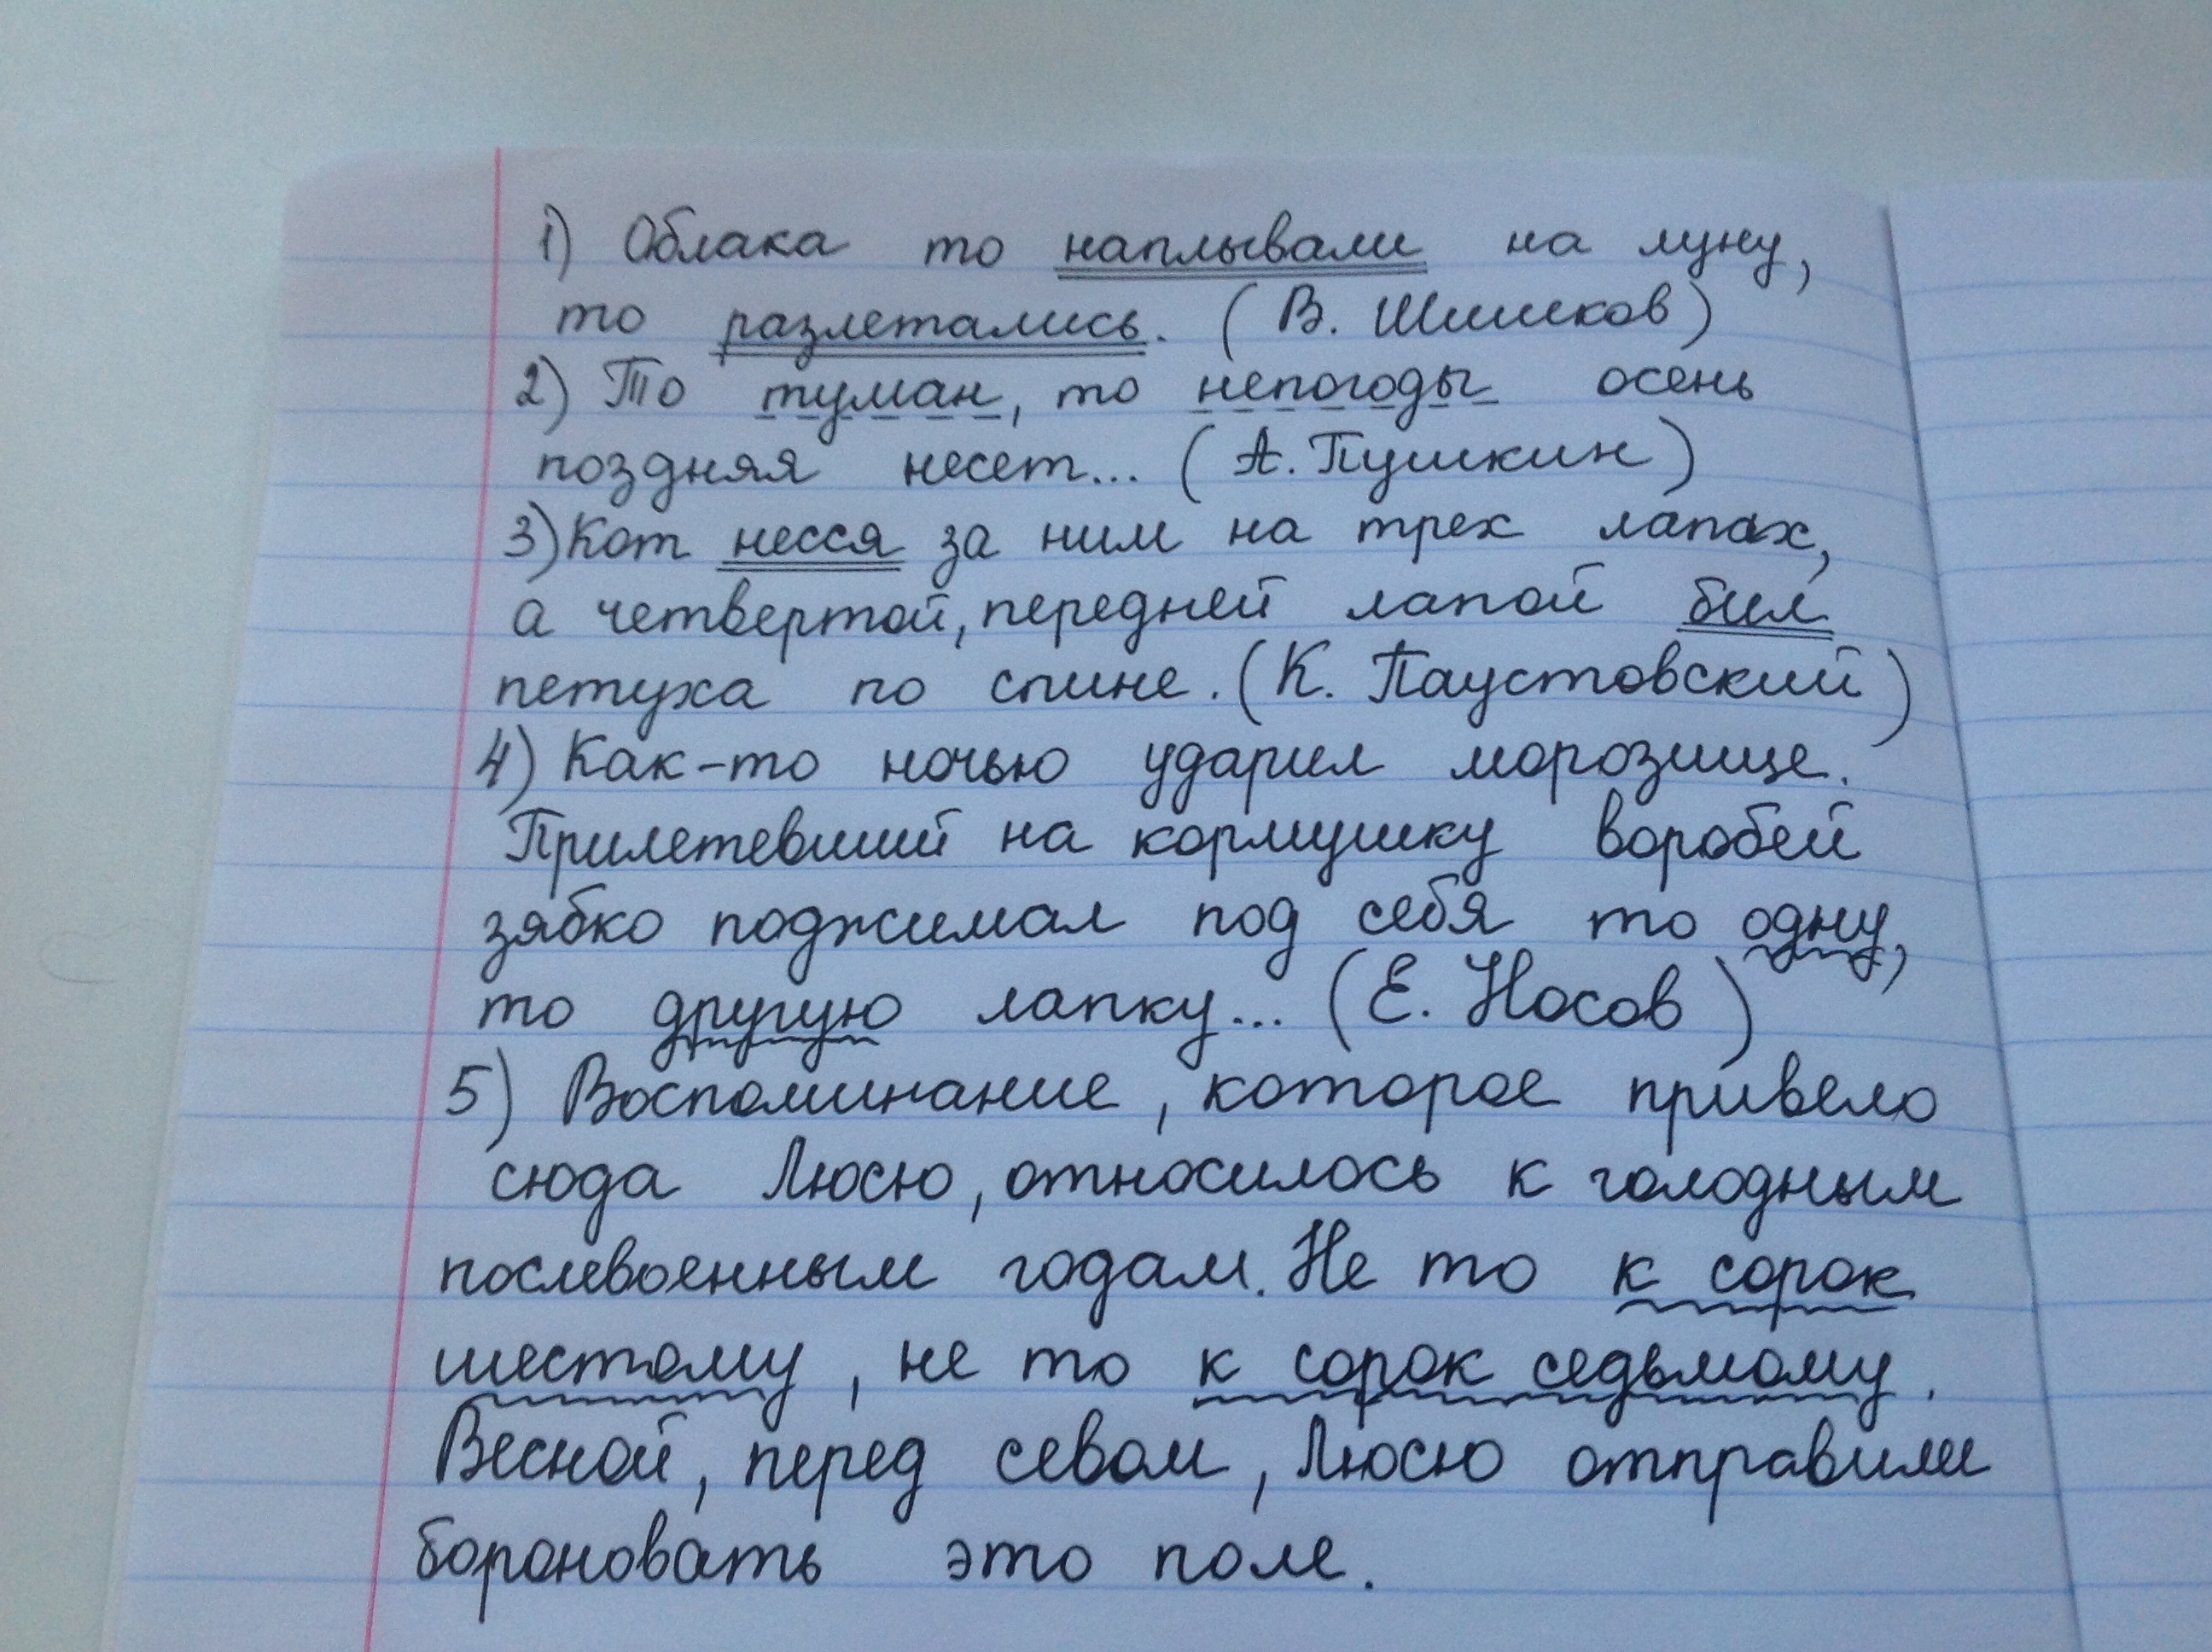 1) Облака то наплывали на луну,
то разлетались. (В. Шишков)
2) То туман, то непогоды осень
поздняя несет... (А. Пушкин)
3) Кот несся за ним на трех лапах,
а четвертой, передней лапой бил
петуха по спине. (К. Паустовский)
4) Как-то ночью ударил морозище.
Прилетевший на кормушку воробей
зябко поджимал под себя то одну,
то другую лапку... (Е. Носов)
5) Воспоминание, которое привело
сюда Люсю, относилось к голодным
послевоенным годам. Не то к сорок
шестому, не то к сорок седьмому.
Весной, перед севом, Люсю отправили
бороновать это поле.